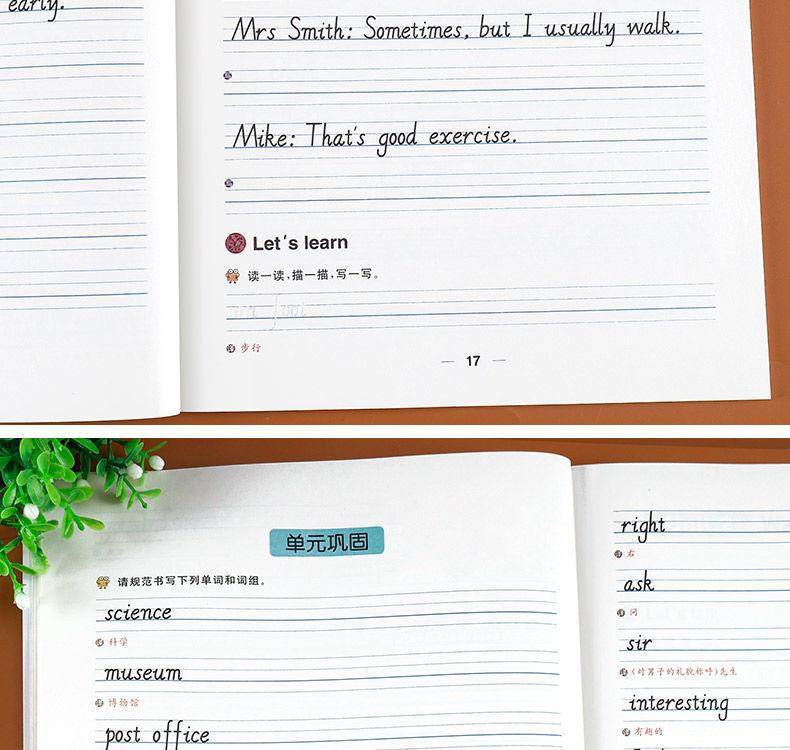 early.
Mrs Smith: Sometimes, but I usually walk.
写
Mike: That's good exercise.
写
Let's learn
读一读，描一描，写一写。
on foot
译 步行
— 17 —
单元巩固
请规范书写下列单词和词组。
science
译 科学
museum
译 博物馆
post office
right
译 右
ask
译 问
sir
译 (对男子的礼貌称呼)先生
interesting
译 有趣的